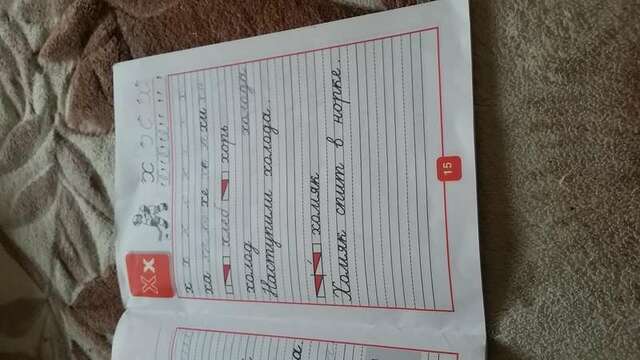 Хх
х
х х х
ха хе хи
хлеб хорь
холод холода
Наступили холода.
хомяк
Хомяк спит в норке.
15